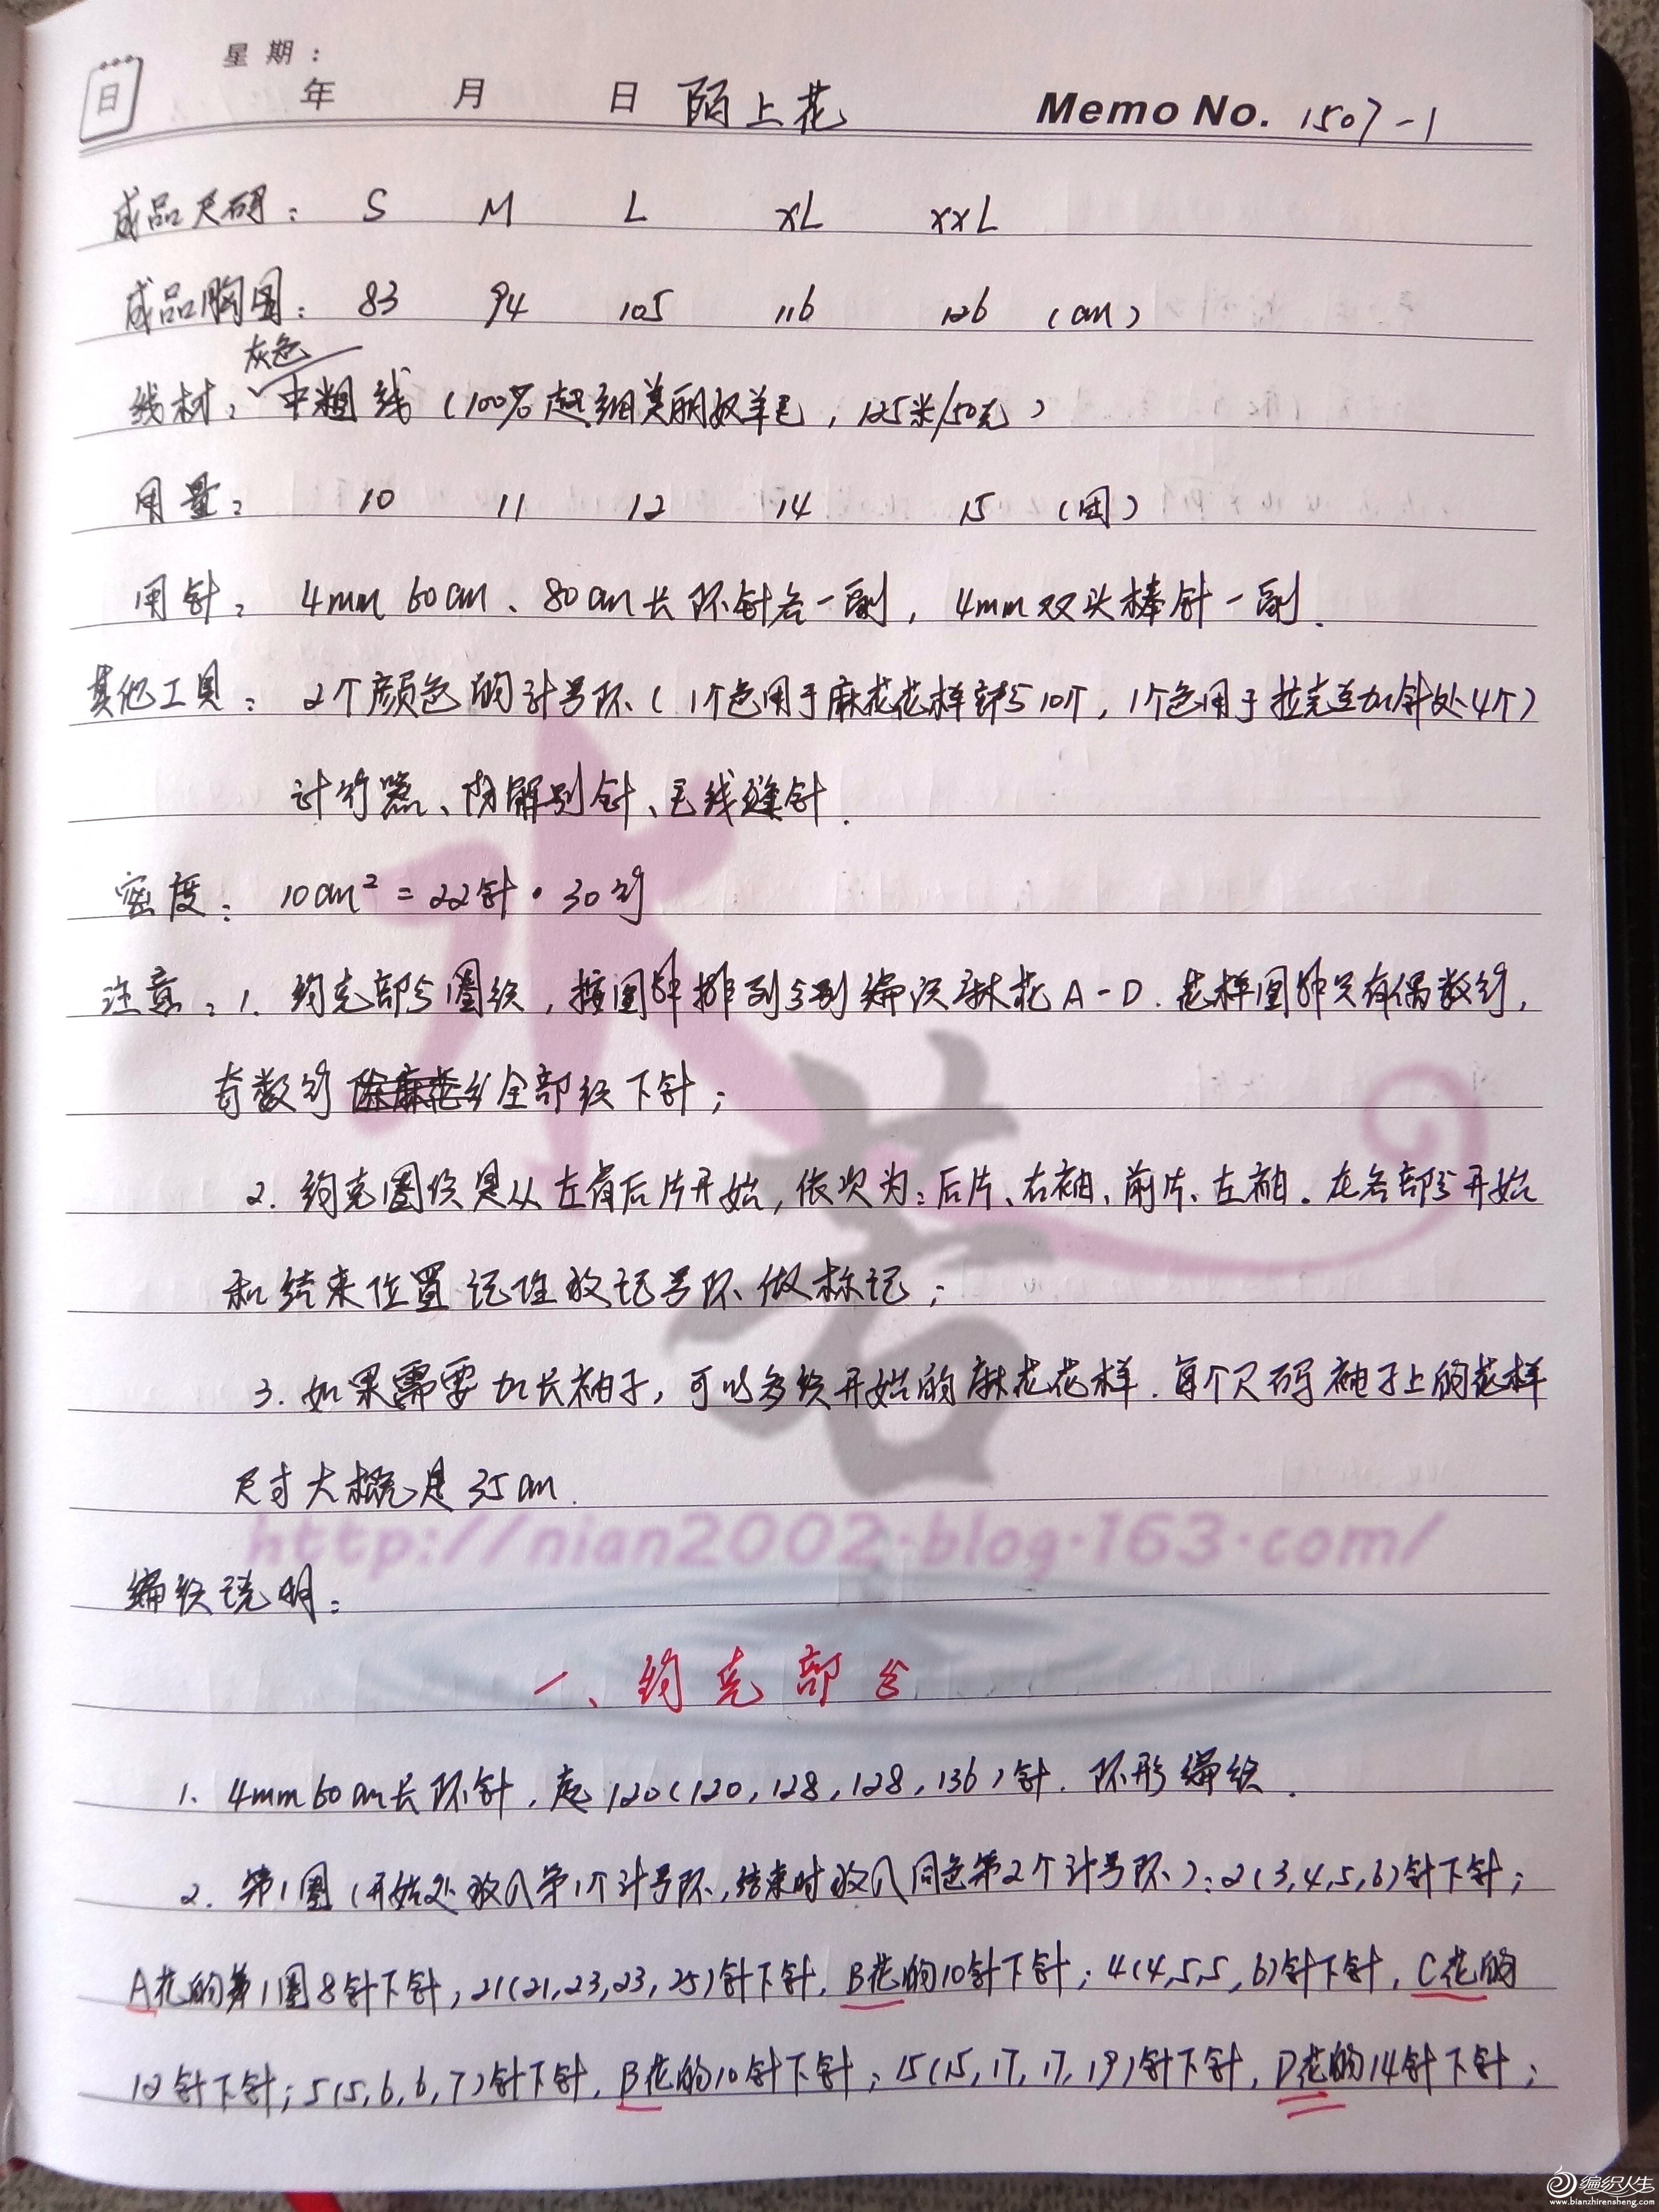 星期：
日 年 月 日 陌上花 Memo No. 1507-1
成品尺码： S M L XL XXL
成品胸围： 83 94 105 116 126 （cm）
灰色
线材： 中粗线（100%超细美丽奴羊毛，125米/50克）
用量： 10 11 12 14 15 （团）
用针： 4mm 60cm、80cm长环针各一副，4mm双头棒针一副.
其他工具： 2个颜色的计号环（1个色用于麻花花样部分10个，1个色用于拉克兰加针处4个）
计行器、防解别针、毛线缝针.
密度： 10cm²=22针·30行
注意：1. 约克部分圈织，按图解排列分别编织麻花A-D. 花样图解只有偶数行，
奇数行 全部织下针；
2. 约克圈织是从左肩后片开始，依次为：后片、右袖、前片、左袖。在各部分开始
和结束位置记住放记号环做标记；
3. 如果需要加长袖子，可以多织开始的麻花花样. 每个尺码袖子上的花样
尺寸大概是35cm.
水若
http://nian2002.blog.163.com/
编织说明：
一、约克部分
1. 4mm60cm长环针，起120（120，128，128，136）针. 环形编织.
2. 第1圈（开始处放入第1个计号环，结束时放入同色第2个计号环）：2（3，4，5，6）针下针；
A花的第1圈8针下针，21（21，23，23，25）针下针，B花的10针下针；4（4，5，5，6）针下针，C花的
12针下针；5（5，6，6，7）针下针，B花的10针下针；15（15，17，17，19）针下针，D花的14针下针；
编织人生
www.bianzhirensheng.com